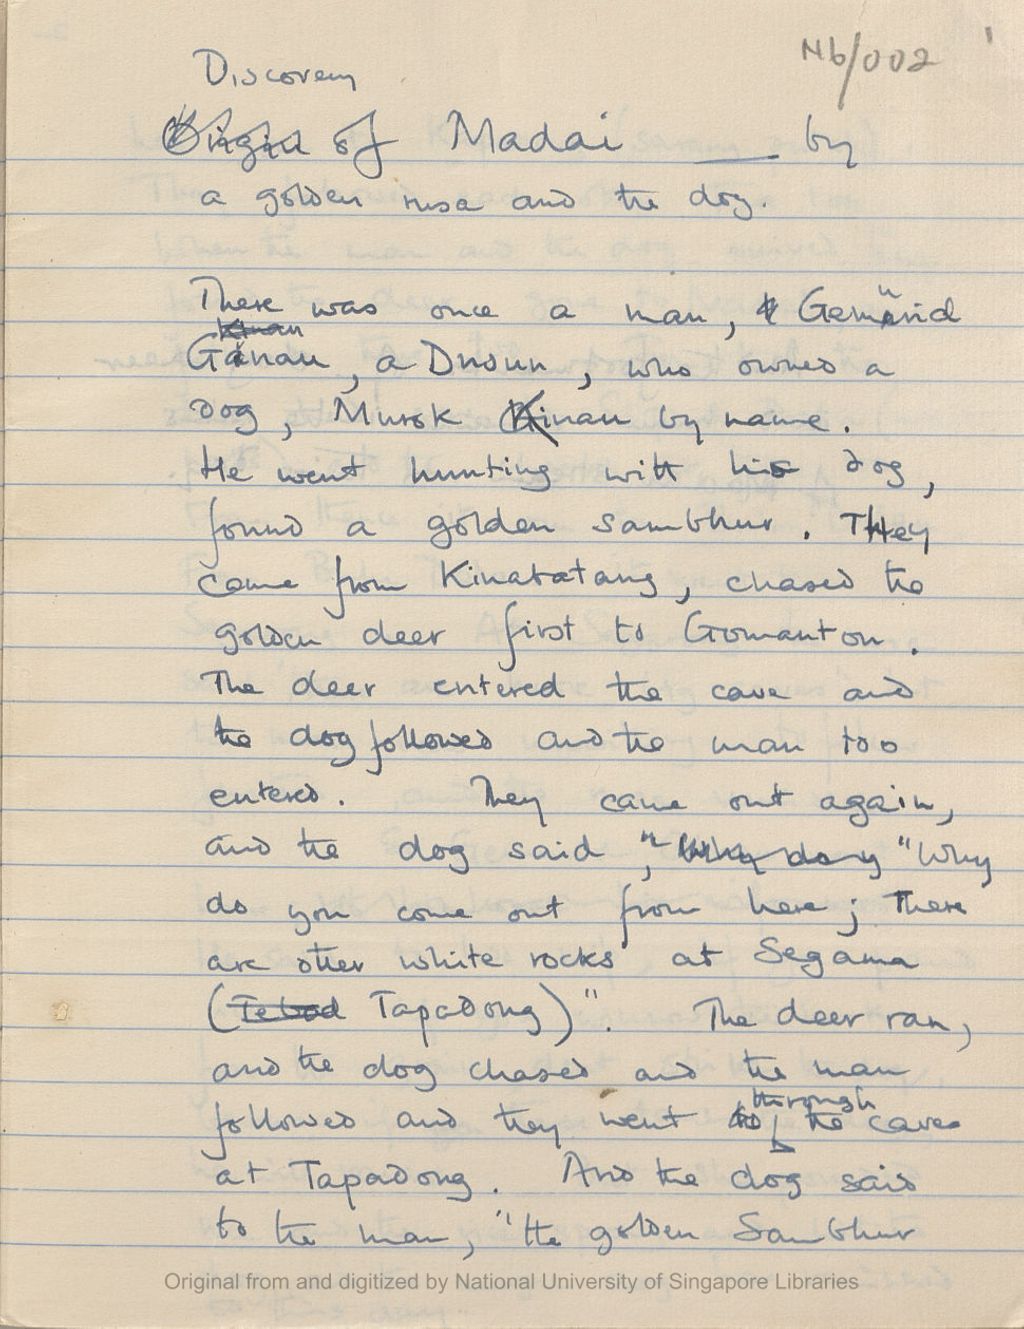 Nb/002
1
Discovery
Origin of Madai — by
a golden rusa and the dog.
There was once a man, Gemunid
Kinan
Ganau, a Dusun, who owned a
dog, Murok Kinau by name.
He went hunting with his dog,
found a golden sambhur. They
came from Kinabatang, chased the
golden deer first to Gomanton.
The deer entered the cave and
the dog followed and the man too
entered. They came out again,
and the dog said, "Why do y "Why
do you come out from here; There
are other white rocks at Segama
(Tebad Tapadong)". The deer ran,
and the dog chased and the man
through
followed and they went to the caves
at Tapadong. And the dog said
to the man, "the golden Sambhur
Original from and digitized by National University of Singapore Libraries